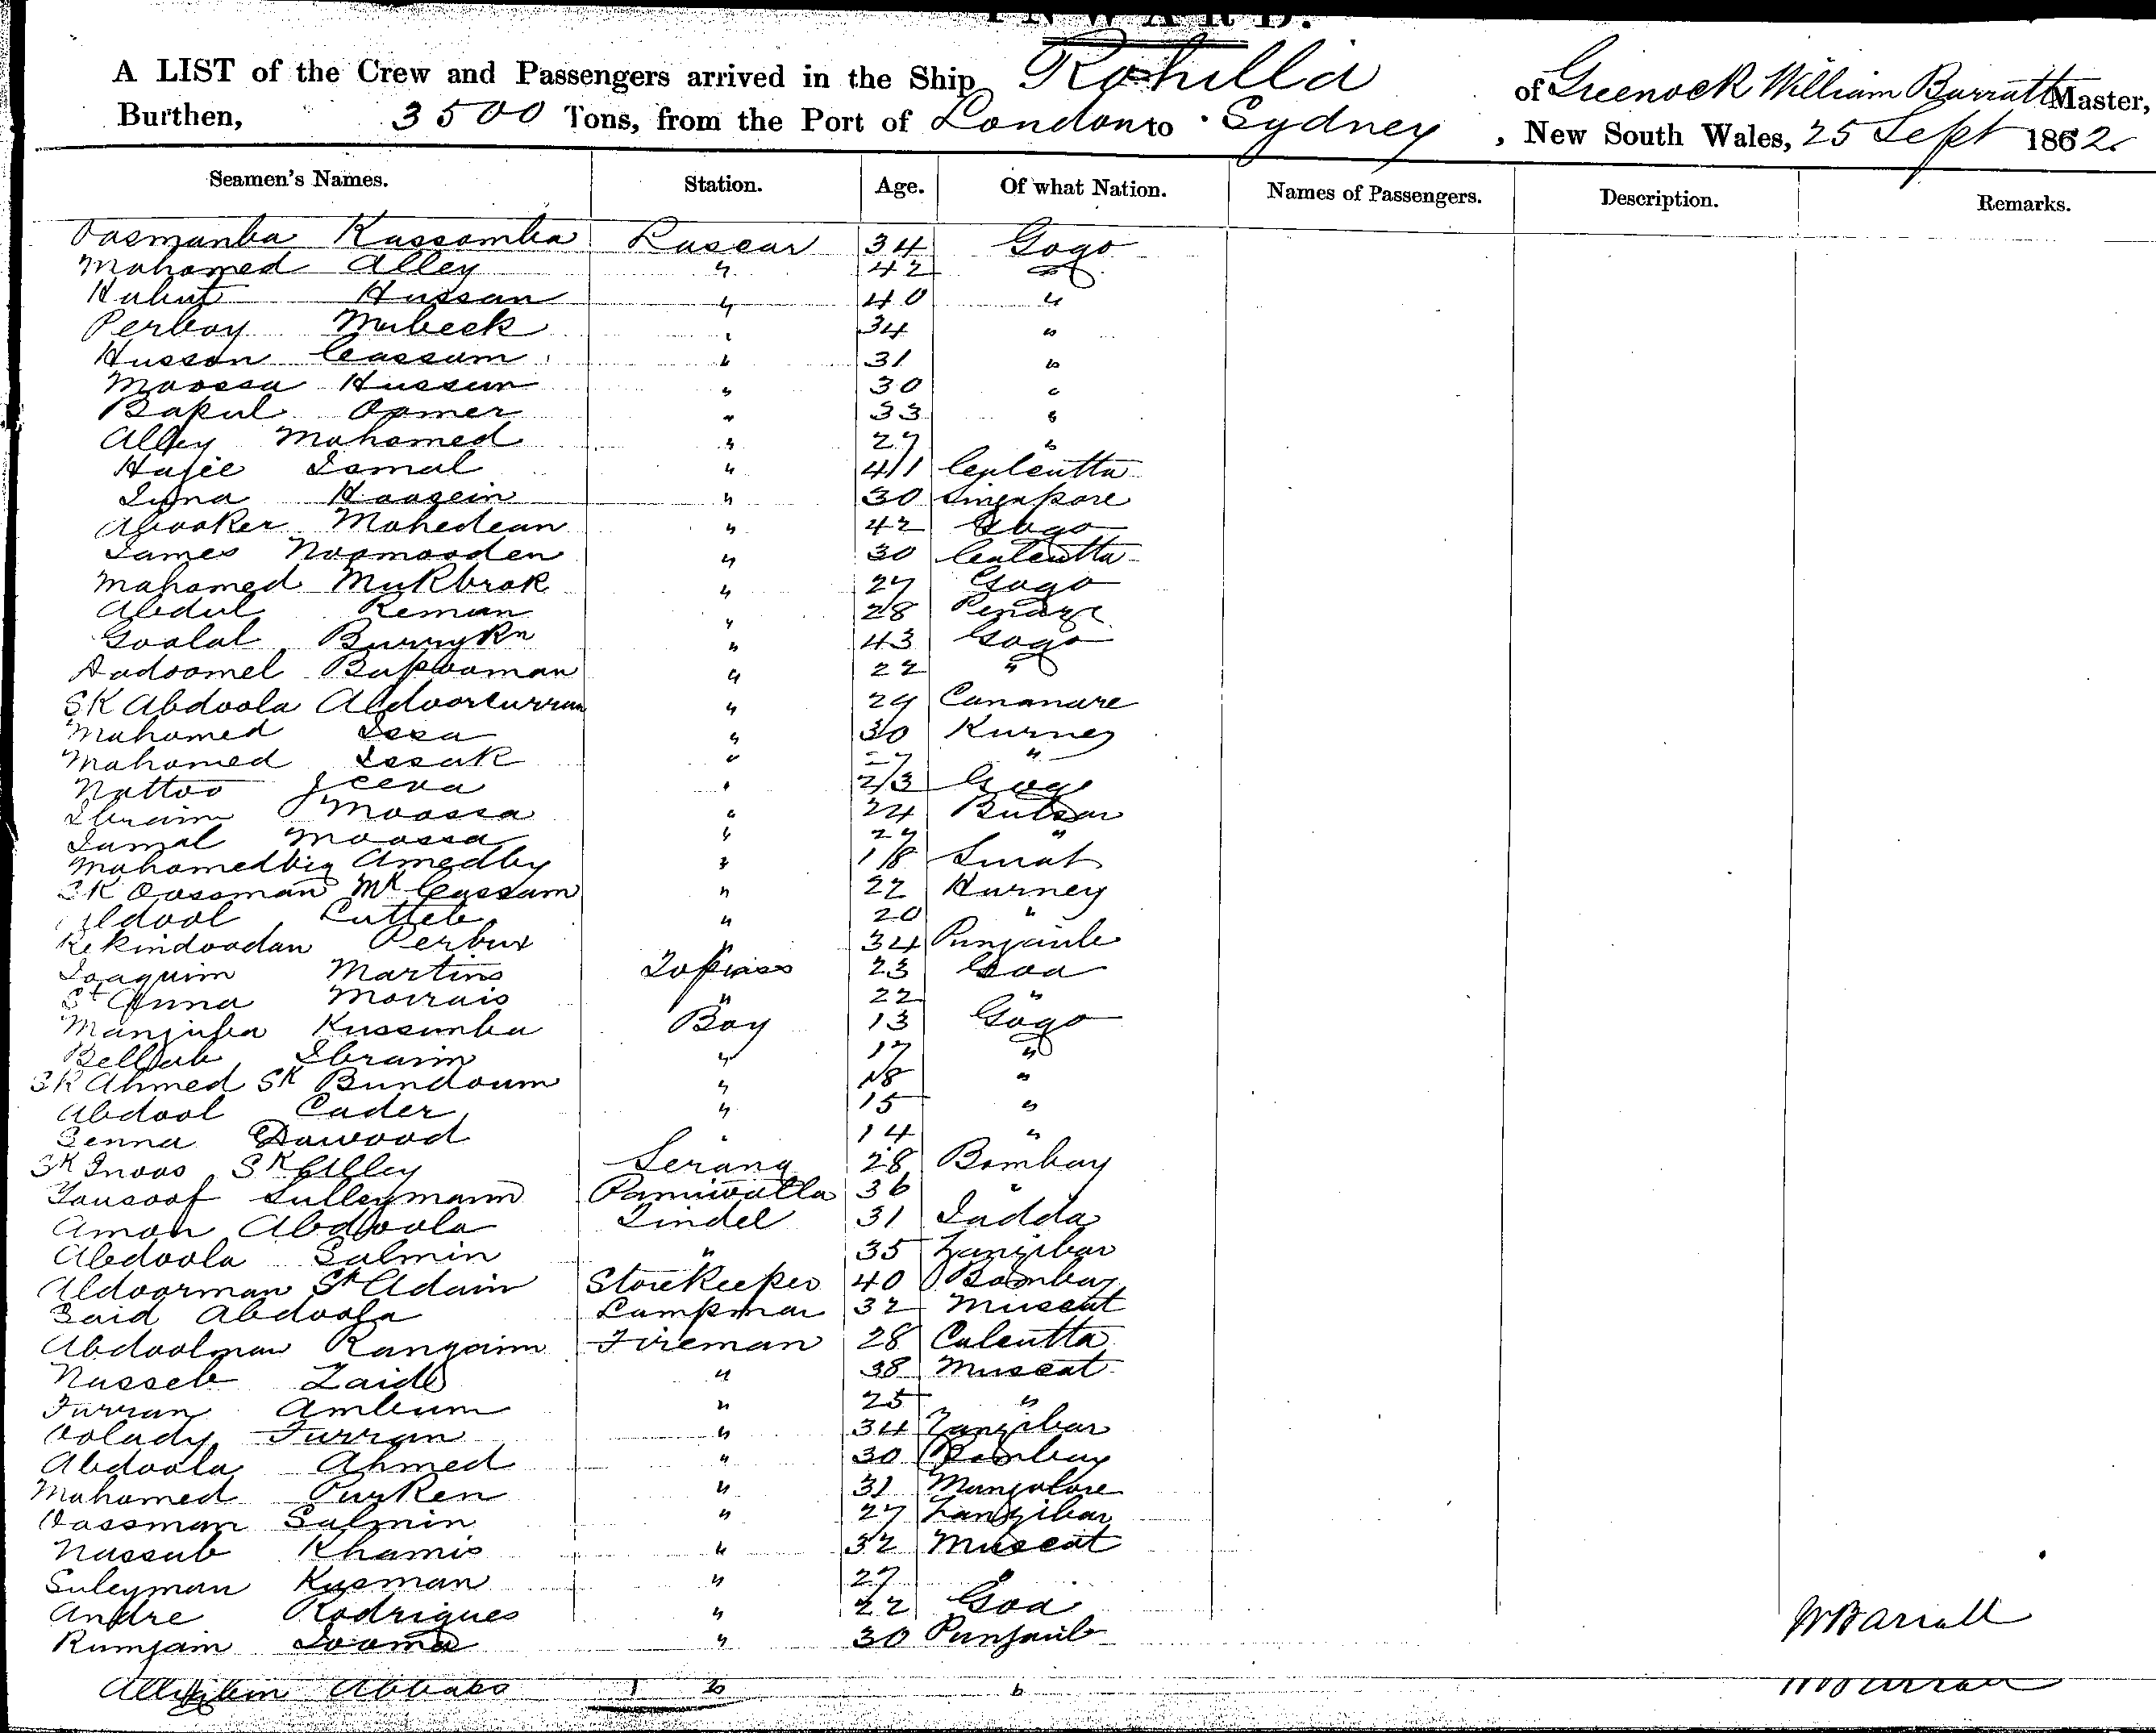 INWARD.
A LIST of the Crew and Passengers arrived in the Ship Rohilla of Greenock William Barratt Master,
Burthen, 3500 Tons, from the Port of London to Sydney, New South Wales, 25 Sept 1862
Seamen's Names. Station. Age. Of what Nation. Names of Passengers. Description. Remarks.
Oasmanba Kassomba Lascar 34 Gogo
Mahomed Alley " 42 "
Hussan " 40 "
Perboy Mubeck " 34 "
Husson Cassum " 31 "
Moossa Hussun " 30 "
Bapul Oomer " 33 "
Alley Mahomed " 27 "
Hajee Ismal " 41 Calcutta
Hoozein " 30 Singapore
Abooker Mohedean " 42 Gogo
James Noomooden " 30 Calcutta
Mahomed Mukbrok " 27 Gogo
Abdul Reman " 28 Penang
Goolal " 43 Gogo
Dadoomel " 22 "
SK Abdoola " 29 Cananore
Mahomed Issa " 30 Hurney
Mahomed Issak " 27 "
Nattoo Jeeva " 23 Gogo
Ibraim Moossa " 24 Bulsar
Jamal Moossa " 27 "
Mahomedbig Amedby " 18 Surat
SK Oossman Mk Cassum " 22 Hurney
Abdool Cutteb " 20 "
Perbux " 34 Punjaub
Joaquim Martins Topass 23 Goa
St Anna Morrais " 22 "
Manjuba Kussumba Boy 13 Gogo
Belljub Ibraim " 17 "
SK Ahmed SK Bundoum " 18 "
Abdool Cader " 15 "
Senna Dawood " 14 "
SK Inoos SK Alley Serang 28 Bombay
Yousoof Sulleymann Paniwalla 36 "
Amon Abdoola Tindel 31 Jadda
Abdoola Salmin " 35 Zanzibar
Aldoorman SK Adam Storekeeper 40 Bombay
Said Abdoola Lampman 32 Muscat
Abdoolman Rangaim Fireman 28 Calcutta
Nusseb Zaid " 38 Muscat
Furran Ambum " 25 "
Volady Furran " 34 Zanzibar
Abdoola Ahmed " 30 Bombay
Mahomed Purken " 31 Mangalore
Oossman Salmin " 27 Zanzibar
Nassub Khamis " 32 Muscat
Suleyman Kusman " 27 "
Andre Rodrigues " 22 Goa
Rumjam Jooma " 30 Punjaub
W Barratt
Abbas " "